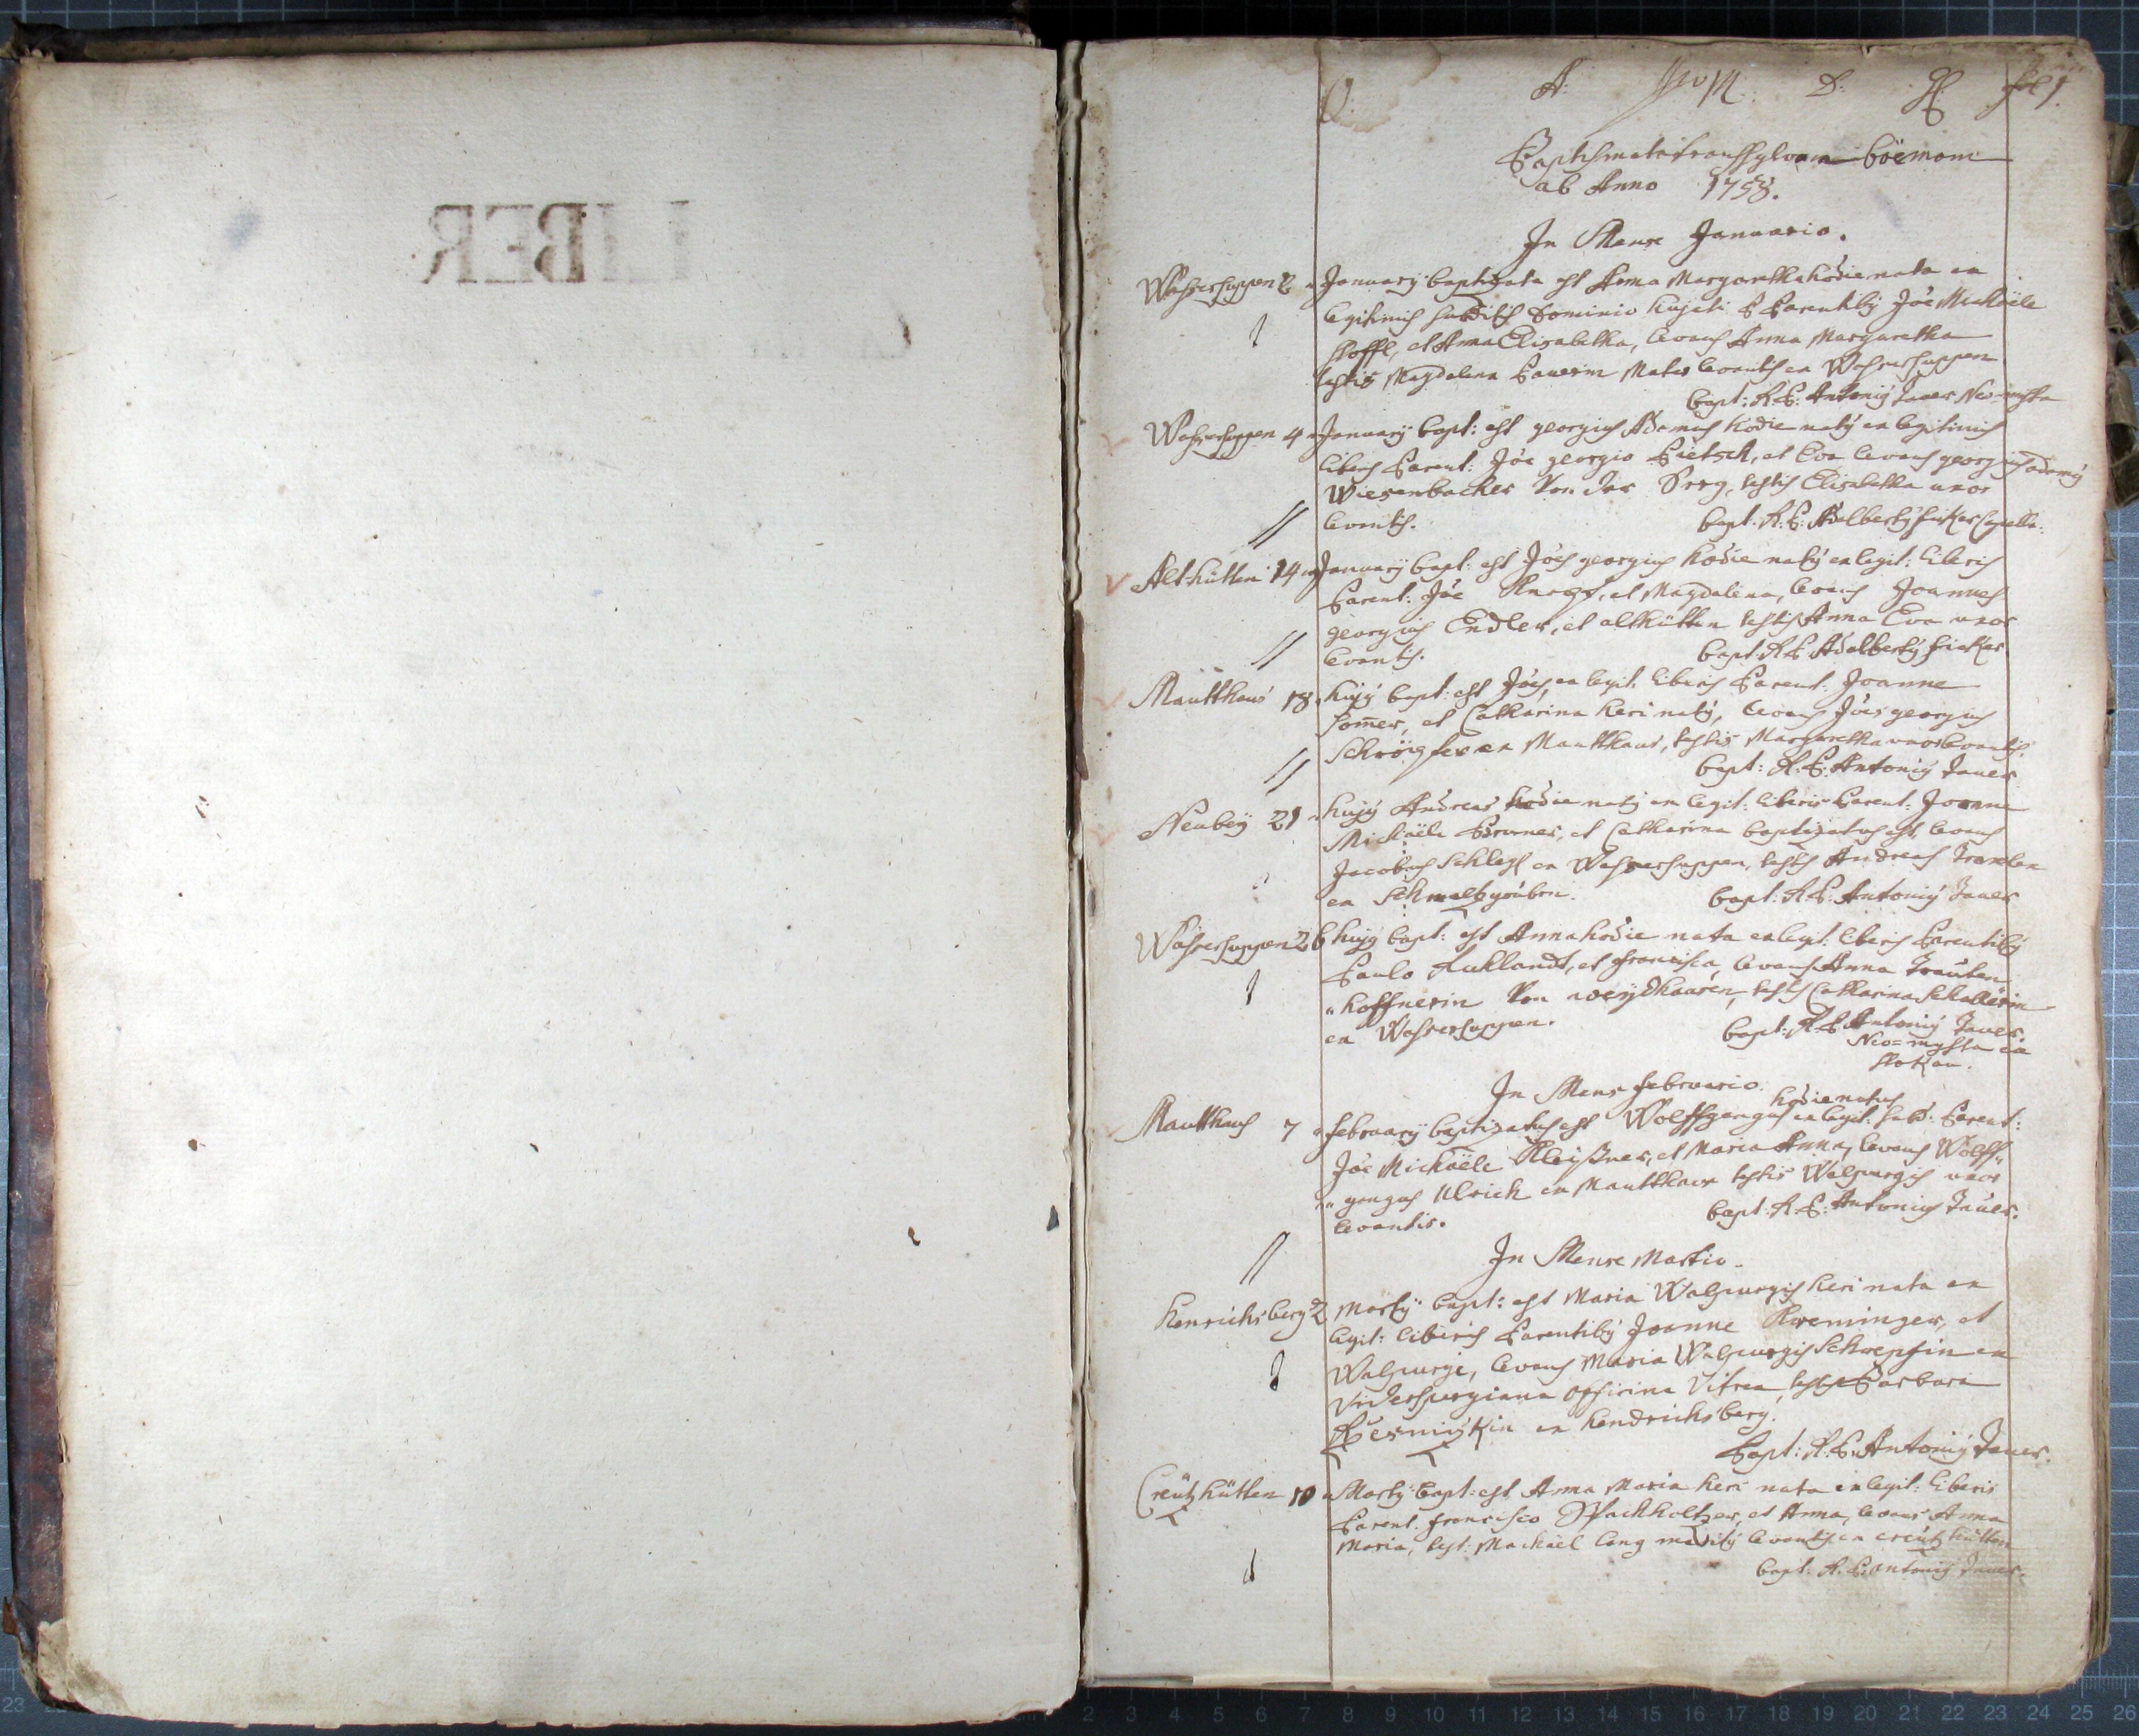 LIBER
O. A. M. D. G. fol 1.
Baptismata transsylvan Boëmam
ab Anno 1758.
In Mense Januario.
Wasßersuppen 2 Januarÿ baptizata est Anna Margaretha hodie nata ex
legitimis subditis Dominio hujati P Parentibÿ Jöe Michaële
Stoffl, et Anna Elisabetha, levans Anna Margaretha
testis Magdalena Bauerin Mater levantis ex Wassersuppen
bapt: R. P. Antonÿ Jauer Neo-mysta
Wasßersuppen 4 Januarÿ bapt: est georgius Adamus hodie natÿ ex legitimis
liberis Parent: Jöe georgio Pietsch, et Eva levans georgius adamÿ
Wiesenbacher Von der Sorg, testis Elisabetha uxor
levantis. bapt: R. P. Adalbertÿ fieker Capella:
Althütten 14 Januarÿ bapt: est Jöes georgius hodie natÿ ex legit: liberis
Parent: Jöe et Magdalena, levans Joannes
georgius Endler, et althütten testis Anna Eva uxor
levantis. bapt: R. P. Adalbertÿ fieker
Mautthaus 18 hujÿ bapt: est Jöes, ex legit. liberis Parent: Joanne
Som̄er, et Catharina heri natÿ, levans Jöes georgius
ex Mautthaus, testis Margaretha uxor levantis.
bapt: R. P. Antonÿ Jauer
Neubeÿ 21 hujÿ Andreas hodie natÿ ex legit: liberis Parent: Joanne
Michaële et Catharina baptizatus est, levans
Jacobus Schlegl ex Wasßersuppen, testis Andreas
ex Schmaltzgruben. bapt: R. P. Antonÿ Jauer
Wasßersuppen 26 hujÿ bapt: est Anna hodie nata ex legit: liberis Parentibÿ
Paulo Ruklandt, et francisca, levans Anna Trauten
" hoffnerin Von weÿdhaasen, testis Catharina Schallerin
ex Wasßersuppen. bapt: R. P. Antonÿ Jauer
Neo=mysta ex
Stokau.
In Mens februario.
hodie natus
Mautthaus 7 februarÿ baptizatus est Wolffgangus ex legit: subd: Parent:
Jöe Michaële Kleißner, et Maria Anna, levans Wolff"
" gangus Ulrich ex Mautthaus testis Walpurgis uxor
levantis. bapt: R. P. Antonius Jauer.
In Mense Martio.
Henrichsberg 2 Martÿ bapt: est Maria Walpurgis heri nata ex
legit: liberis Parentibÿ Joanne et
Walpurge, levans Maria Walpurgis Schrepfin ex
officina Vitrea, testis Barbara
ex hendrichsberg.
Bapt: R. P. Antonÿ Jauer.
Creützhütten 10 Martÿ bapt: est Anna Maria heri nata ex legit: liberis
Parent. francisco et Anna, levans Anna
Maria, test: Machaël lang maritÿ levantis ex creützhütten
bapt: R. P. antonÿ Jauer.